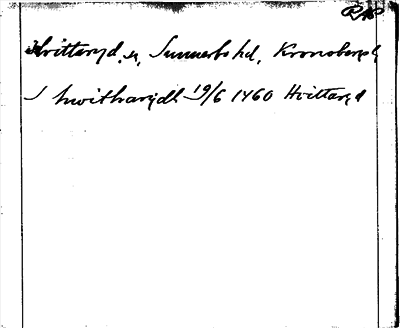 RAP
Hvittaryd, sn, Sunnerbo hd, Kronobergs l
I hwitharydh 19/6 1460 Hvittaryd